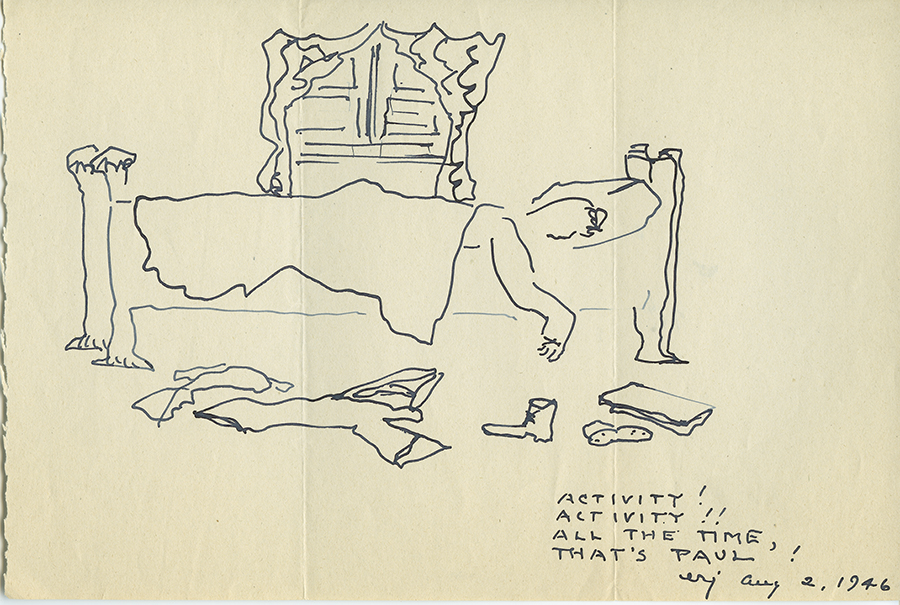 ACTIVITY!
ACTIVITY!!
ALL THE TIME,
THAT'S PAUL!
erj aug 2, 1946